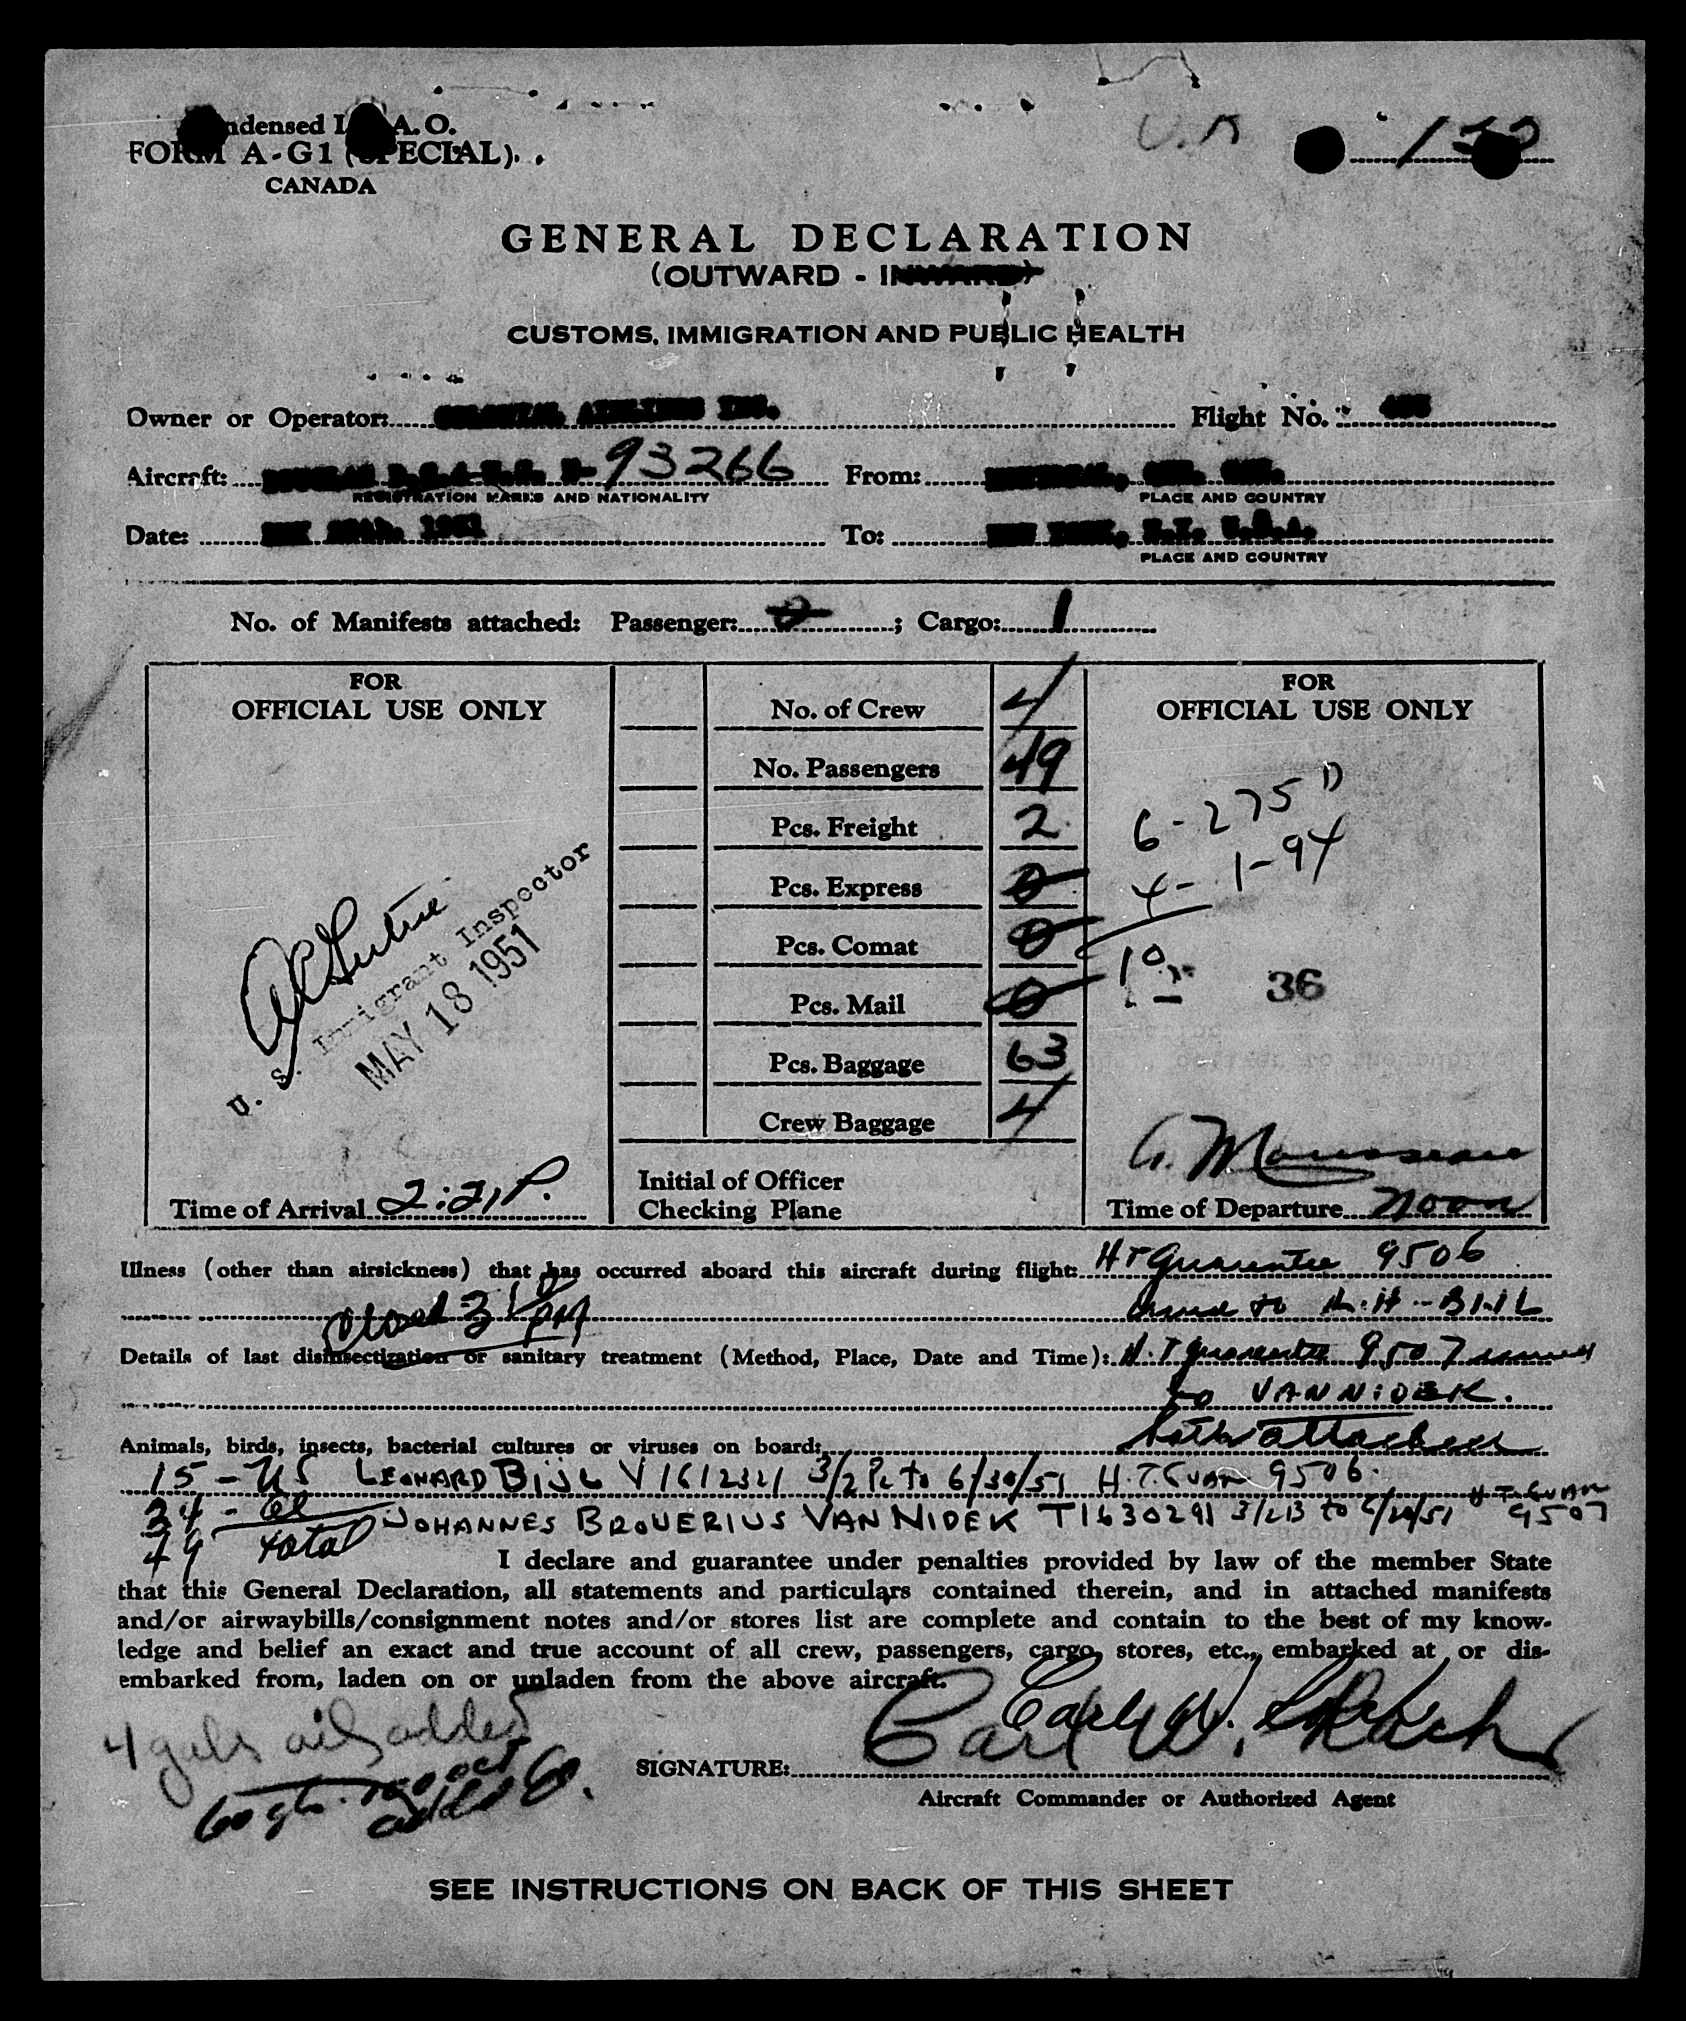 U.K
ndensed I A.O.
FORM A-G1 (SPECIAL).
CANADA
GENERAL DECLARATION
(OUTWARD - INWARD)
CUSTOMS, IMMIGRATION AND PUBLIC HEALTH
Owner or Operator: COLONIAL AIRLINES INC. Flight No.
Aircraft: DOUGLAS 93266 From: MONTREAL,
REGISTRATION MARKS AND NATIONALITY PLACE AND COUNTRY
Date: MAY 18th. 1951 To: NEW YORK, N.Y. U.S.A.
PLACE AND COUNTRY
No. of Manifests attached: Passenger: 0 ; Cargo: 1
FOR
OFFICIAL USE ONLY
No. of Crew 4
No. Passengers 49
Pcs. Freight 2
Pcs. Express 0
Pcs. Comat 0
Pcs. Mail 0
Pcs. Baggage 63
Crew Baggage 4
U. S. Immigrant Inspector
MAY 18 1951
Time of Arrival 2:21 P.
Initial of Officer
Checking Plane
FOR
OFFICIAL USE ONLY
6-275 D
4- 1-94
10 36
G. Mousseau
Time of Departure noon
Illness (other than airsickness) that has occurred aboard this aircraft during flight: H T Guarantee 9506
closed issued to
Details of last disinsectization or sanitary treatment (Method, Place, Date and Time): H.T guarantee 9507 issued
to VAN NIDEK.
Animals, birds, insects, bacterial cultures or viruses on board: both attached
15 - US LEONARD BIJL V1612321 3/2 to 6/30/51 H.T.GUAR 9506.
34 - al JOHANNES BROUERIUS VAN NIDEK T1630291 3/213 to H T. GUAR 9507
49 total
I declare and guarantee under penalties provided by law of the member State
that this General Declaration, all statements and particulars contained therein, and in attached manifests
and/or airwaybills/consignment notes and/or stores list are complete and contain to the best of my know-
ledge and belief an exact and true account of all crew, passengers, cargo, stores, etc., embarked at or dis-
embarked from, laden on or unladen from the above aircraft.
4 gals oil added
60 gls. 100 oct
added
SIGNATURE: Carl W.
Aircraft Commander or Authorized Agent
SEE INSTRUCTIONS ON BACK OF THIS SHEET